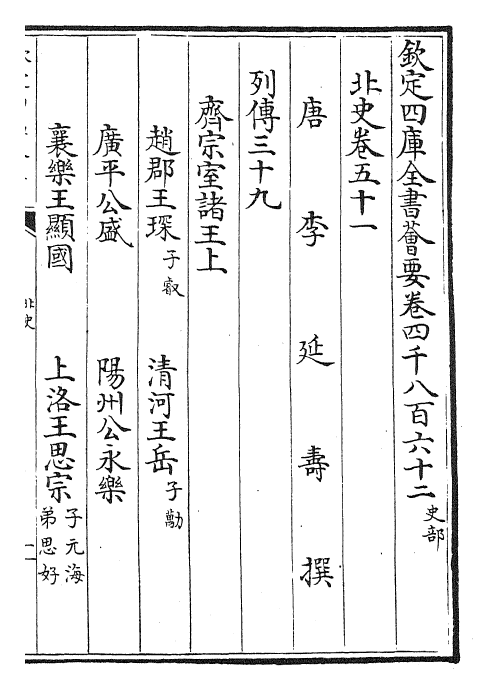 欽定四庫全書薈要卷四千八百六十二 史部
北史卷五十一
唐 李 延 壽 撰
列傳三十九
齊宗室諸王上
趙郡王琛 子叡 清河王岳 子勱
廣平公盛 陽州公永樂
襄樂王顯國 上洛王思宗 子元海 弟思好
北史